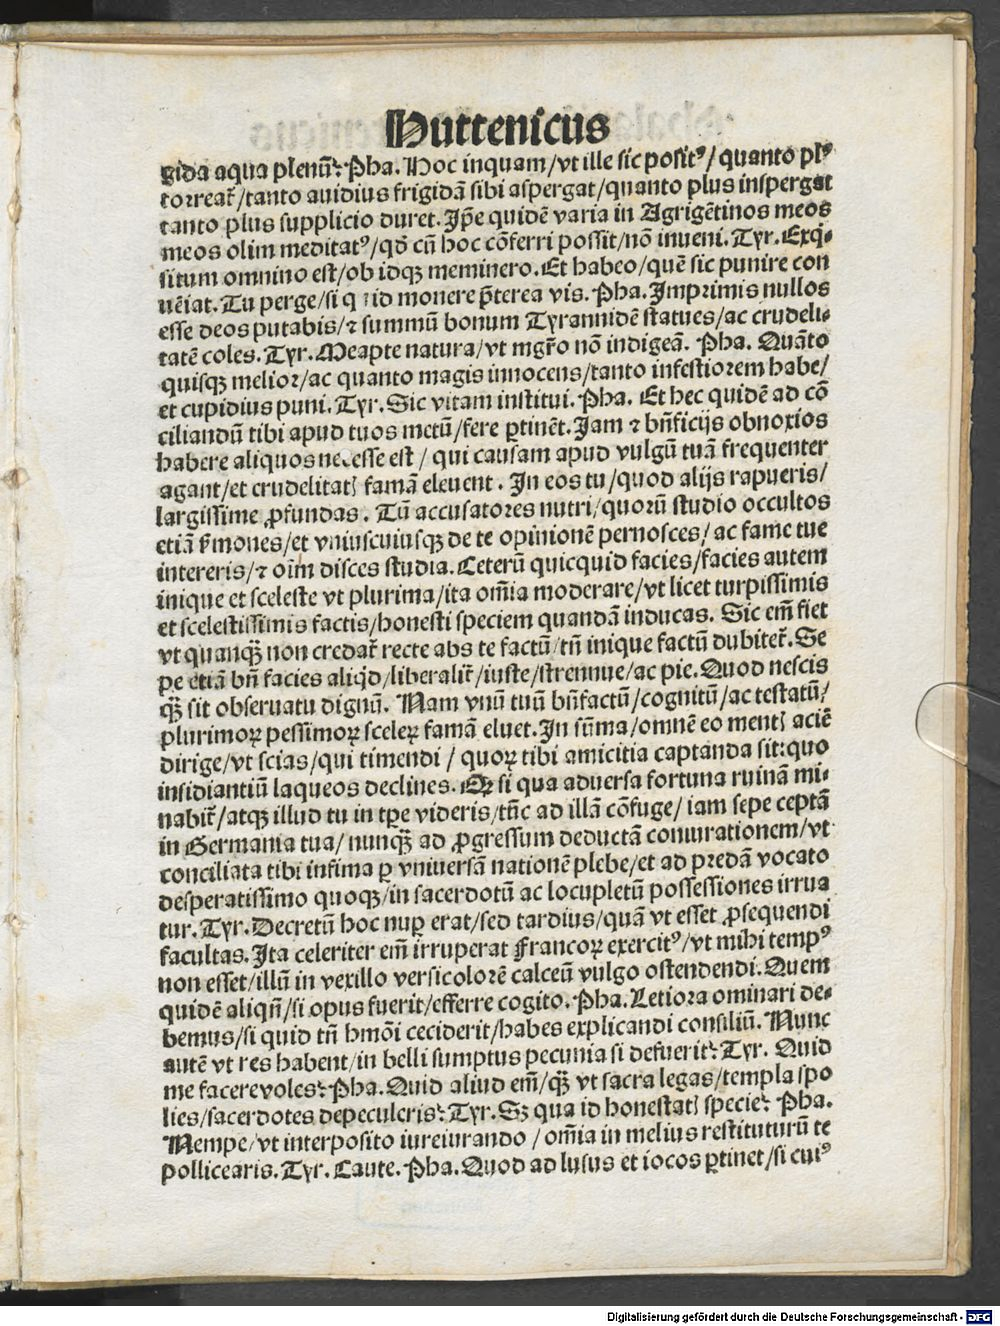 Huttenicus
gida aqua plenū? Pha. Hoc inquam/vt ille sic positꝰ/quanto plꝰ
torreat̃/tanto auidius frigidā sibi aspergat/quanto plus inspergat
tanto plus supplicio duret. Ip̄e quidē varia in Agrigētinos meos
meos olim meditatꝰ/qđ cū hoc cōferri possit/nō inueni. Tyr. Exq̇-
situm omnino est/ob idqꝫ meminero. Et habeo/quē sic punire con
uēiat. Tu perge/si quid monere p̄terea vis. Pha. Imprimis nullos
esse deos putabis/⁊ summū bonum Tyrannidē statues/ac crudeli-
tatē coles. Tyr. Meapte natura/vt mgr̄o nō indigeā. Pha. Quāto
quisqꝫ melior/ac quanto magis innocens/tanto infestiorem habe/
et cupidius puni. Tyr. Sic vitam institui. Pha. Et hec quidē ad cō
ciliandū tibi apud tuos metū/fere ꝑtinēt. Iam ⁊ bn̄ficijs obnoxios
habere aliquos necesse est/ qui causam apud vulgū tuā frequenter
agant/et crudelitatꝭ famā eleuent. In eos tu/quod alijs rapueris/
largissime ꝓfundas. Tū accusatores nutri/quorū studio occultos
etiā ẜmones/et vniuscuiusqꝫ de te opinionē pernosces/ ac fame tue
intereris/⁊ oīm disces studia. Ceterū quicquid facies/facies autem
inique et sceleste vt plurima/ita om̄ia moderare/vt licet turpissimis
et scelestissimis factis/honesti speciem quandā inducas. Sic em̄ fiet
vt quanq̄ꝫ non credat̃ recte abs te factū/tn̄ inique factū dubitet̃. Se
pe etiā bn̄ facies aliq̇d/liberalit̃/iuste/strennue/ac pie. Quod nescis
q̄ꝫ sit obseruatu dignū. Nam vnū tuū bn̄factū/cognitū/ac testatū/
plurimoꝝ pessimoꝝ sceleꝝ famā eluet. In sūma/omnē eo mentꝭ aciē
dirige/vt scias/qui timendi / quoꝝ tibi amicitia captanda sit: quo
insidiantiū laqueos declines. Qꝫ si qua aduersa fortuna ruinā mi-
nabit̃/atqꝫ illud tu in tp̄e videris/tūc ad illā cōfuge/ iam sepe ceptā
in Germania tua/ nunq̄ꝫ ad ꝓgressum deductā coniurationem/vt
conciliata tibi infima ꝑ vniuersā nationē plebe/et ad predā vocato
desperatissimo quoqꝫ/in sacerdotū ac locupletū possessiones irrua
tur. Tyr. Decretū hoc nuꝑ erat/sed tardius/quā vt esset ꝓsequendi
facultas. Ita celeriter em̄ irruperat Francoꝝ exercitꝰ/vt mihi tempꝰ
non esset/illū in vexillo versicolorē calceū vulgo ostendendi. Quem
quidē aliqn̄/si opus fuerit/efferre cogito. Pha. Letiora ominari de-
bemus/si quid tn̄ hmōi ceciderit/habes explicandi consiliū. Nunc
autē vt res habent/in belli sumptus pecunia si defuerit? Tyr. Quid
me facere voles? Pha. Quid aliud em̄/q̄ꝫ vt sacra legas/templa spo
lies/sacerdotes depeculeris? Tyr. Sꝫ qua id honestatꝭ specie? Pha.
Nempe/vt interposito iureiurando /om̄ia in melius restituturū te
pollicearis. Tyr. Caute. Pha. Quod ad lusus et iocos ꝑtinet/si cuiꝰ
Digitalisierung gefördert durch die Deutsche Forschungsgemeinschaft - DFG